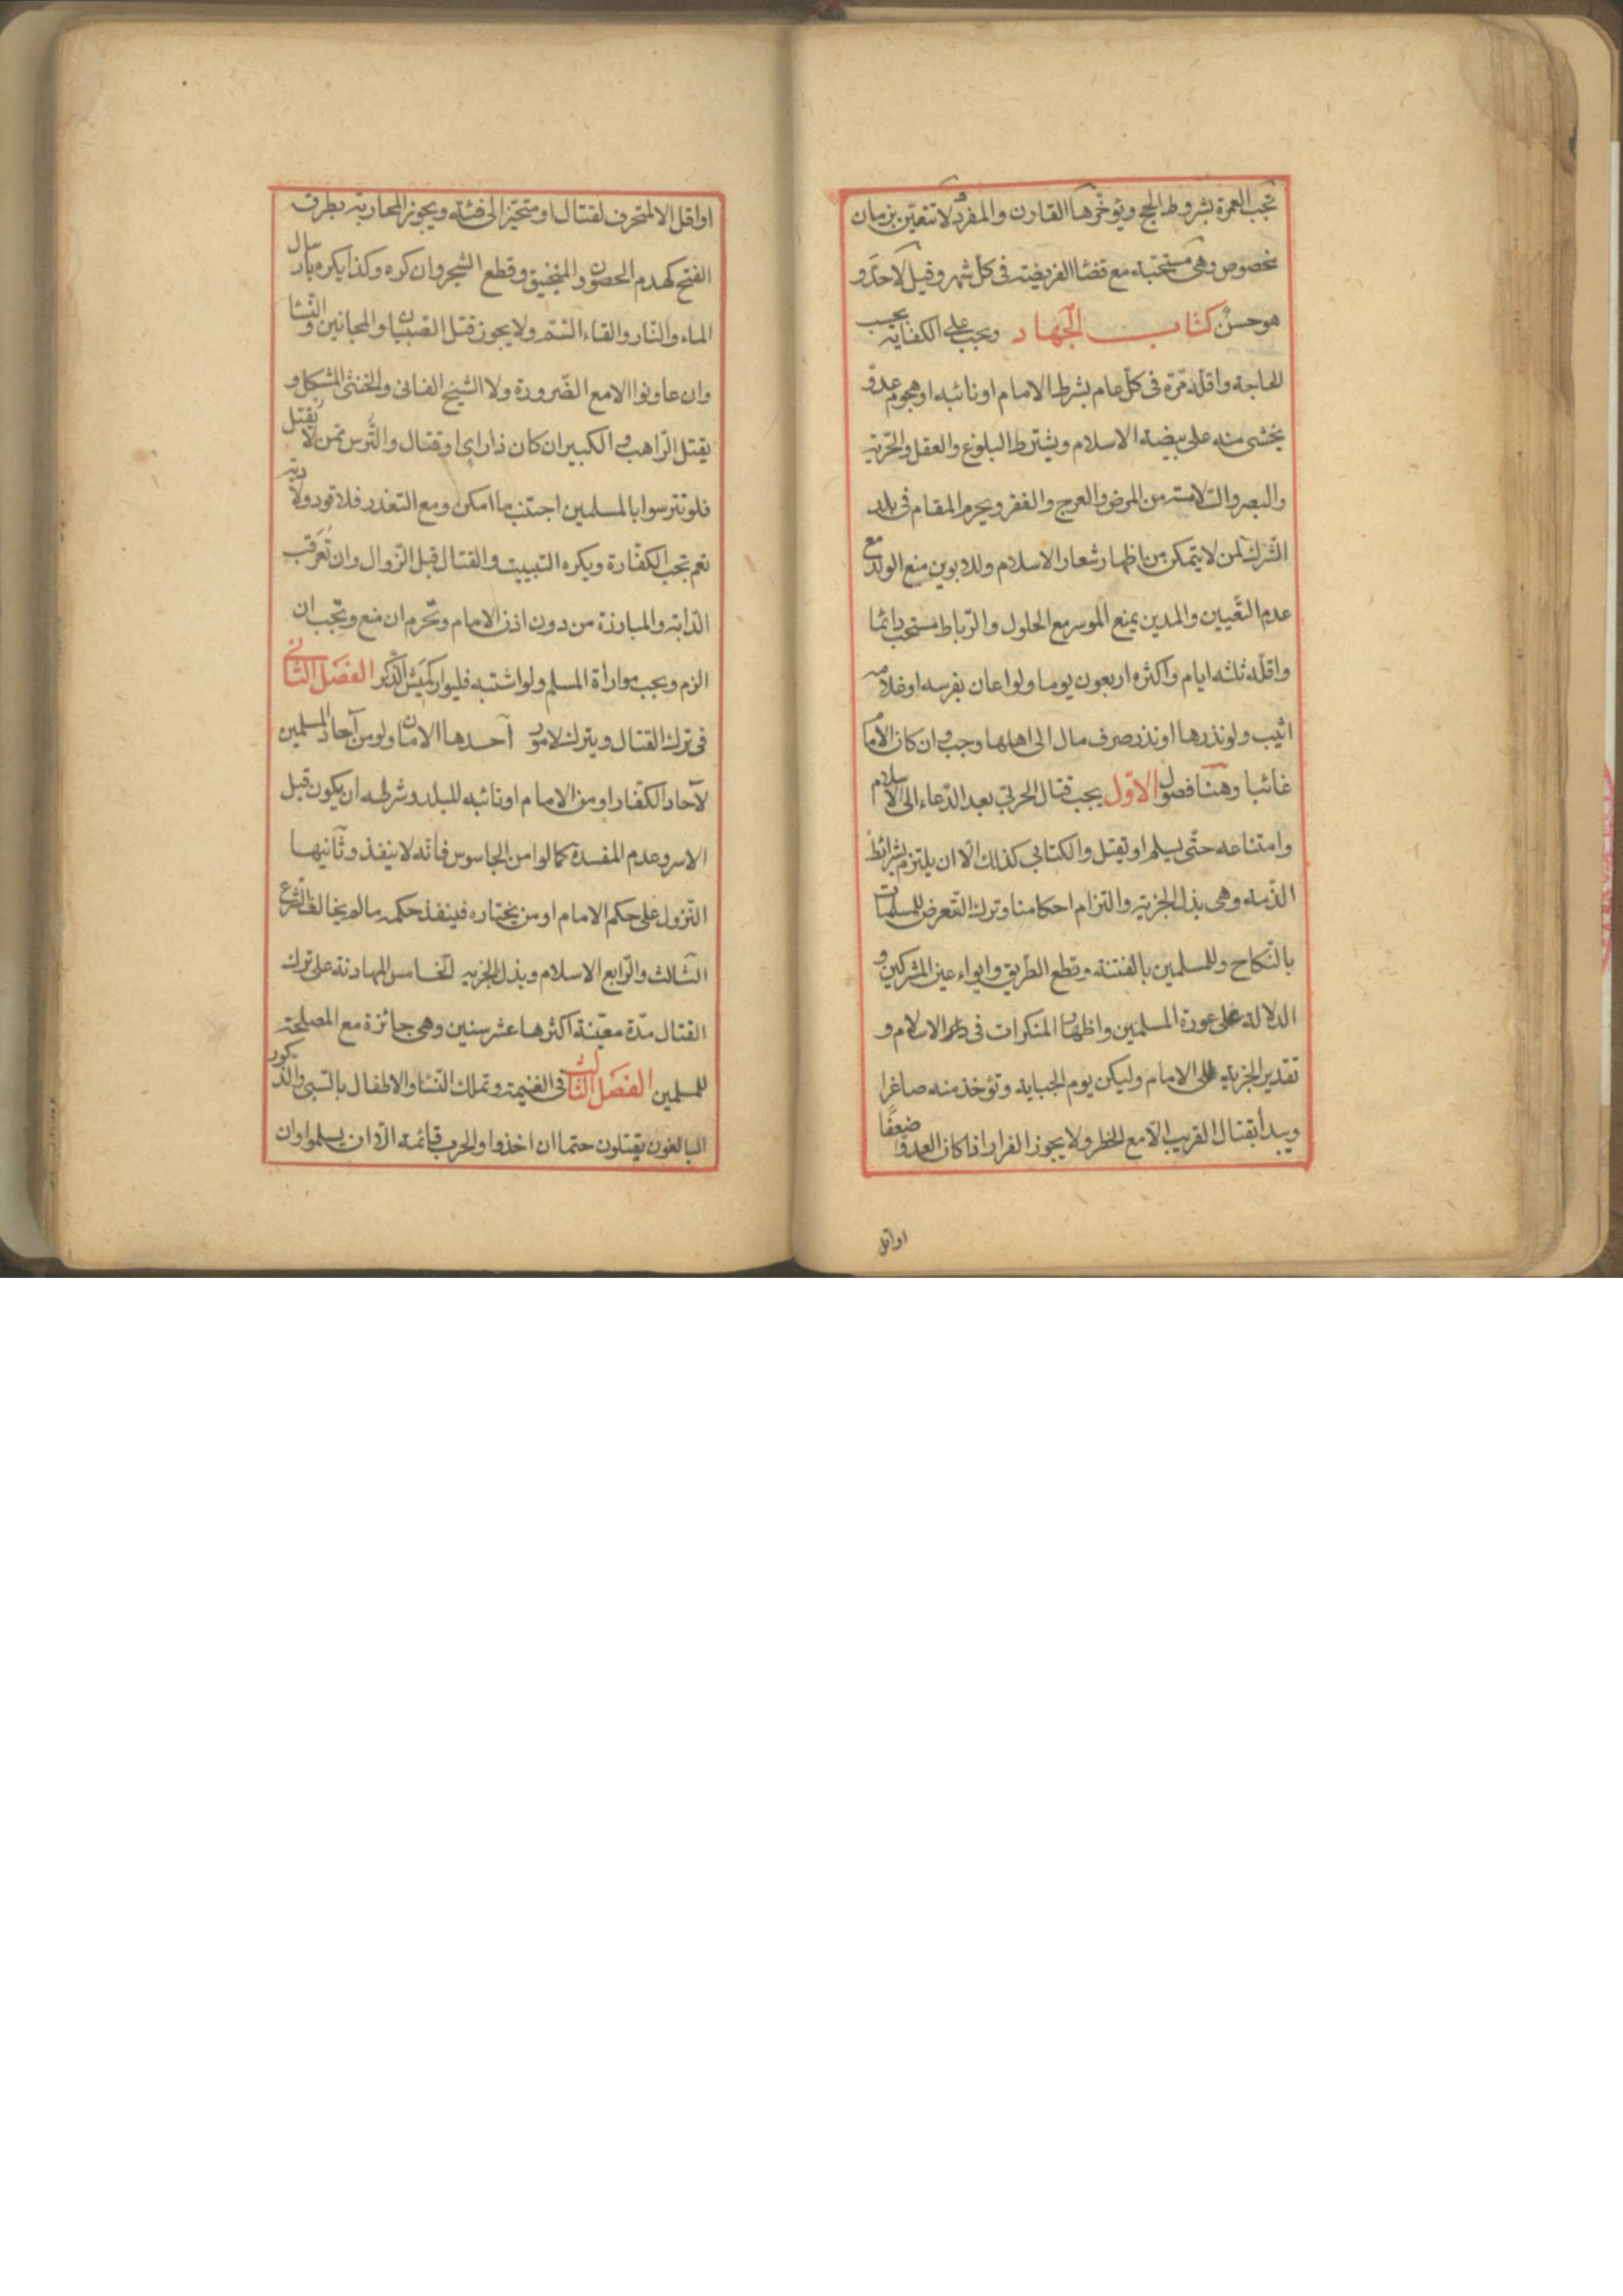 تجب العمرة بشروط الحج ويؤخرها القارن والمفرد ولا تتعين بزمان
مخصوص وهى مستحبة مع قضاء الفريضة فى كل شهر وقيل لا حدّ و
هو حسن كتاب الجهاد ويجب على الكفاية بحسب
الحاجة واقله مرّة فى كلّ عام بشرط الامام او نائبه او هجوم عدوّ
يخشى منه على بيضة الاسلام ويشترط البلوغ والعقل والحرّية
والبصر والسّلامة من المرض والعرج والفقر ويحرم المقام فى بلد
الشّرك لمن لا يتمكن من اظهار شعار الاسلام وللابوين منع الولد مع
عدم التّعيين والمدين يمنع الموسر مع الحلول والرّباط مستحب دائما
واقلّه ثلثه ايام واكثره اربعون يوما ولو اعان بفرسه او غلامه
اثيب ولو نذرها او نذر صرف مال الى اهلها وجب وان كان الامام
غائبا وهنا فصول الاوّل يجب قتال الحربّي بعد الدّعاء الى الاسلام
وامتناعه حتّى يسلم او يقتل والكتابى كذلك الّا ان يلتزم بشرائط
الذّمة وهى بذل الجزية والتزام احكامنا وترك التّعرض للمسلمات
بالنّكاح وللمسلمين بالفتنة وقطع الطّريق وايواء عين المشركين و
الدلالة على عورة المسلمين واظهار المنكرات فى دار الاسلام و
تقدير الجزية الى الامام وليكن يوم الجباية وتؤخذ منه صاغرا
ويبدأ بقتال القريب الّا مع الخطر ولا يجوز الفرار اذا كان العدوّ ضعفًا
او اقل
او اقل الا لمتحرف لقتال او متحيّز الى فئة ويجوز المحاربة بطرق
الفتح كهدم الحصون والمنجنيق وقطع الشجر وان كره وكذا يكره بارسال
الماء والنّار والقاء السّم ولا يجوز قتل الصّبيان والمجانين والنّساء
وان عاونوا الا مع الضّرورة ولا الشيخ الفانى والخنثى المشكل و
يقتل الرّاهب والكبير ان كان ذا راى او قتال والتّرس ممّن لا يقتل
فلو تترسوا بالمسلمين اجتنب ما امكن ومع التعذر فلا قود ولا دية
نعم تجب الكفّارة ويكره التبييت والقتال قبل الزّوال وان تعرقب
الدّابة والمبارزة من دون اذن الامام وتحرم ان منع وتجب ان
الزم ويجب مواراة المسلم ولو اشتبه فليوار كميش الذّكر الفصل الثّانى
فى ترك القتال ويترك لامور آحدها الامان ولو من آحاد المسلمين
لآحاد الكفّار او من الامام او نائبه للبلد وشرطه ان يكون قبل
الاسر وعدم المفسدة كما لو امن الجاسوس فانّه لا ينفذ وثآنيها
النّزول على حكم الامام او من يختاره فينفذ حكمه ما لم يخالف الشّرع
الثّالث والرّابع الاسلام وبذل الجزية الخامس المهادنة على ترك
القتال مدّة معيّنة اكثرها عشر سنين وهى جائزة مع المصلحة
للمسلمين الفصل الثّالث فى الغنيمة وتملك النّساء والاطفال بالسّبى والذّكور
البالغون يقتلون حتما ان اخذوا والحرب قائمة الّا ان يسلموا وان